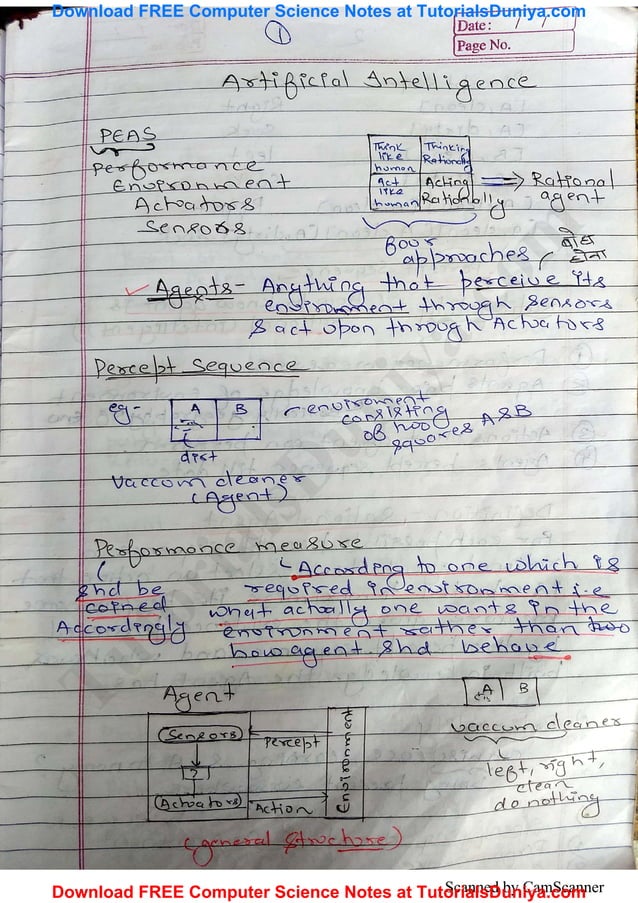 Download FREE Computer Science Notes at TutorialsDuniya.com
Date: / /
Page No.
1
Artificial Intelligence
PEAS
Performance
Environment
Actuators
Sensors
Think like human
Thinking Rationally
Act like human
Acting Rationally
⇒ Rational agent
four approaches
बोध होना
Agents - Anything that perceive its
environment through sensors
& act upon through Actuators
Percept Sequence
eg-
A B
enviroment
consisting
of two
squares A&B
dirt
vaccom cleaner
(Agent)
Performance measure
According to one which is
shd be required in environment i.e
coined, what actually one wants in the
Accordingly environment rather than two
how agent shd behave.
Agent
Sensors
Percept
?
Actuators
Action
Environment
(general structure)
A B
vaccum cleaner
left, right,
clean
do nothing
Scanned by CamScanner
Download FREE Computer Science Notes at TutorialsDuniya.com